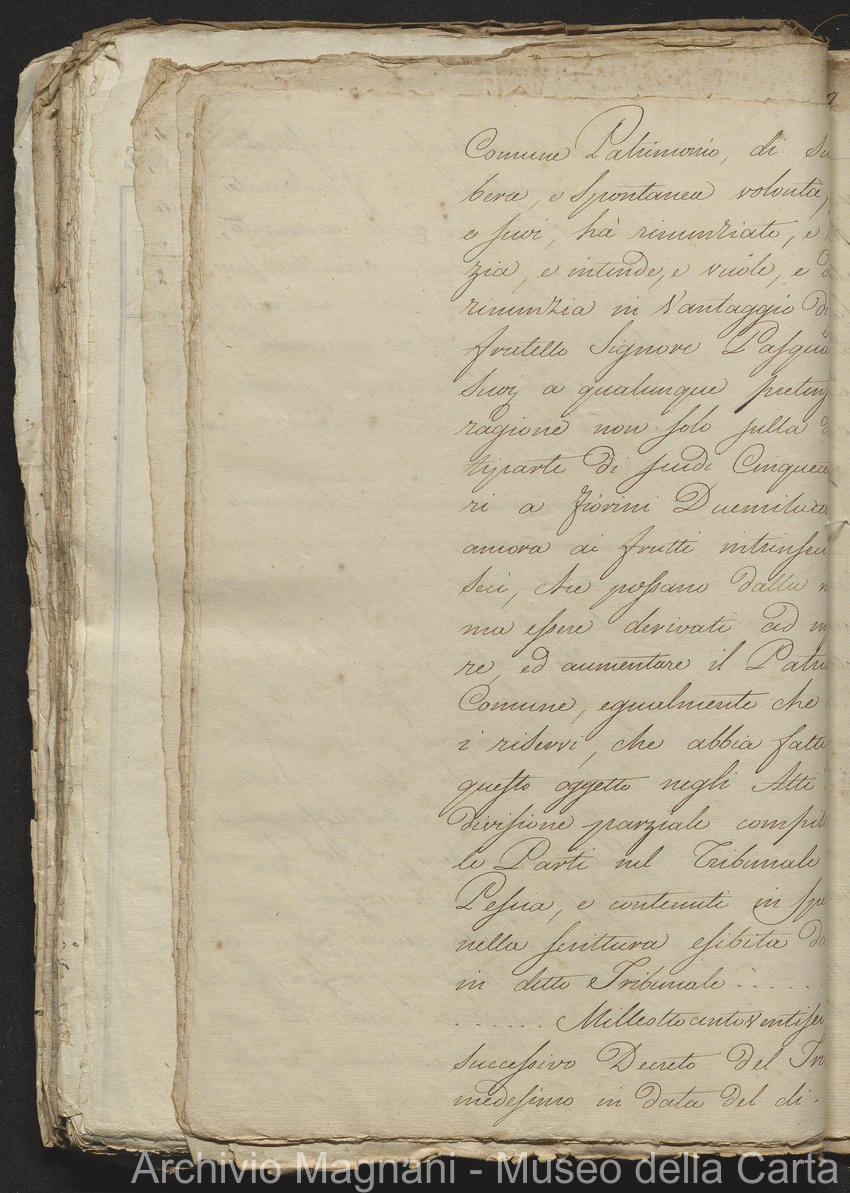 7
Comune Patrimonio, di su
bera, e spontanea volontà,
e suoi, hà rinunziato, e
zia, e intende, e vuole, e d
rinunzia in vantaggio di
fratello Signore Pasqua
Suoz a qualunque pretens
ragione non solo sulla
tiparte di scudi Cinquece
ri a fiorini Duemilace
ancora ai frutti intrinseci
seci, che possano dalla m
ma essere derivati ad
re, ed aumentare il Patri
Comune, egualmente che
i riservi, che abbia fatti
questo oggetto negli Atti
divisione parziale compil
le Parti nel Tribunale
Pescia, e contenuti in spe
nella scrittura esibita da
in detto Tribunale . . . . . .
. . . . . . Milleottocentoventisei
successivo Decreto del Tri
medesimo in data del di .
Archivio Magnani - Museo della Carta